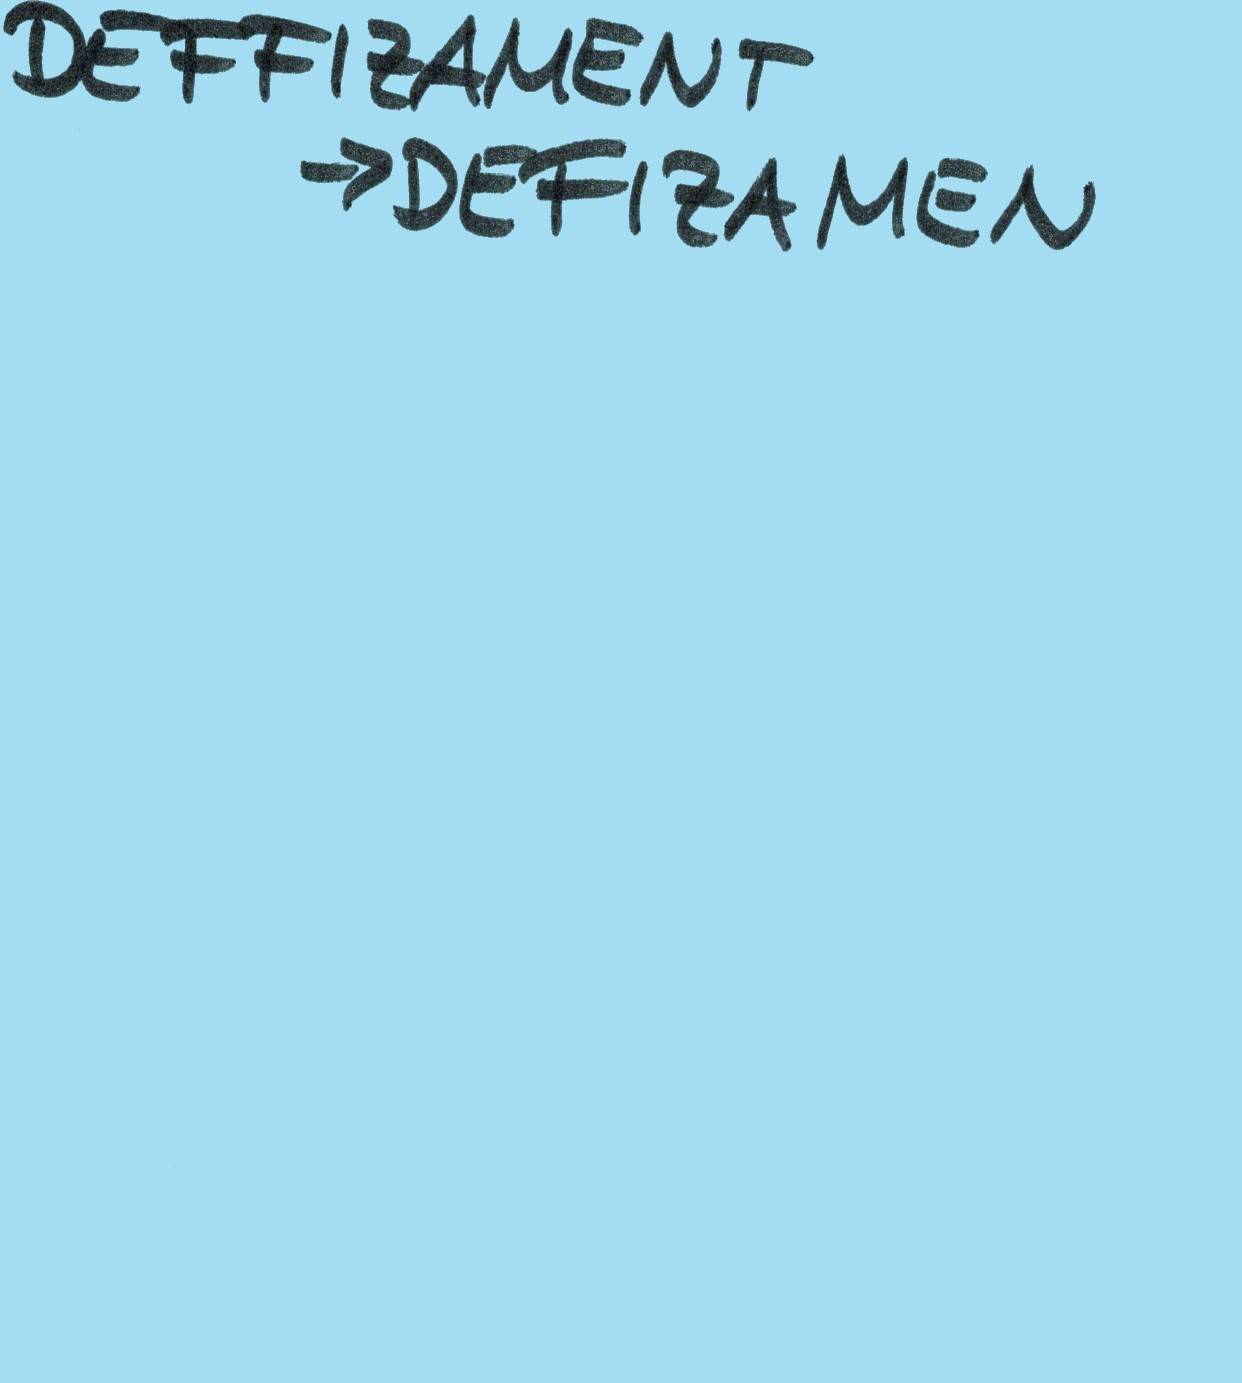 DEFFIZAMENT
→DEFIZAMEN